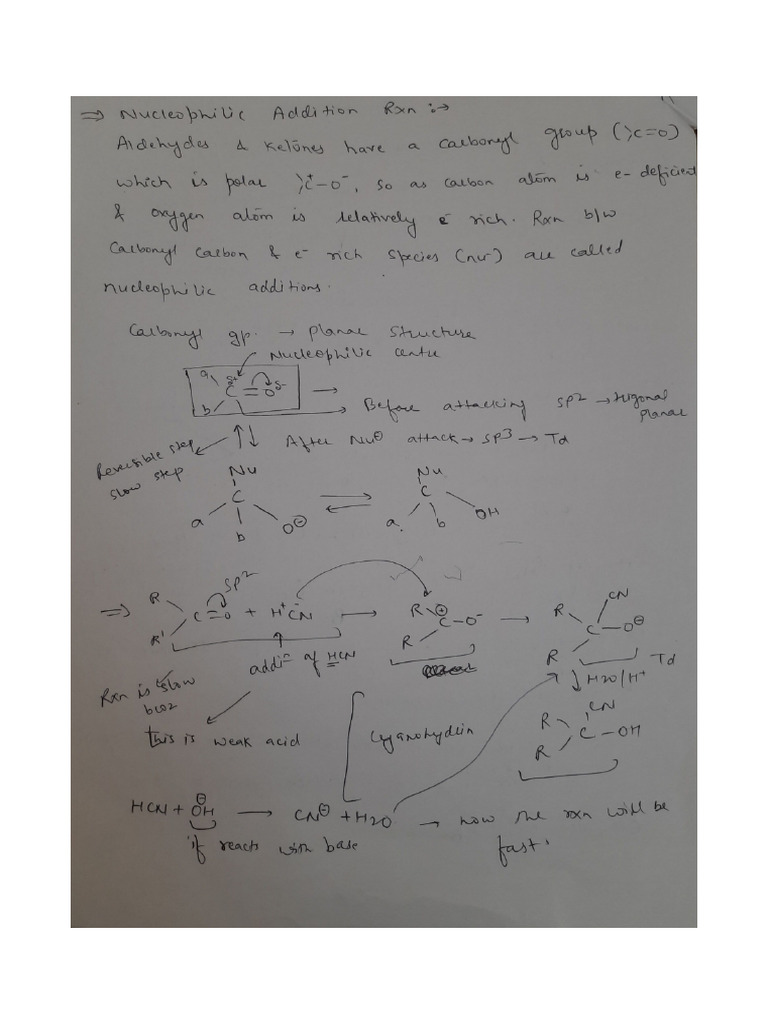 ⇒ Nucleophilic Addition Rxn :→
Aldehydes & Ketones have a carbonyl group (>C=O)
which is polar >C⁺–O⁻, so as carbon atom is e- deficient
& oxygen atom is relatively e⁻ rich. Rxn b/w
Carbonyl carbon & e⁻ rich species (nu⁻) are called
nucleophilic additions.
Carbonyl gp. → planar structure
Nucleophilic centre
a
b
C = O
δ+
δ-
→ Before attacking sp2 → trigonal
planar
Reversible step
slow step
After Nu⊖ attack → sp3 → Td
Nu
C
a
b
O⊖
⇌
Nu
C
a
b
OH
⇒ R
R'
C=O
sp2
+ H⁺CN⁻ →
R
R
⊕
C–O⁻
→
R
R
CN
C–O⊖
Td
addiⁿ of HCN
Rxn is slow
bcoz
this is weak acid
Cyanohydrin
↓ H2O/H⁺
R
R
CN
C–OH
HCN + OH⊖ → CN⊖ + H2O → now the rxn will be
fast.
if reacts with base